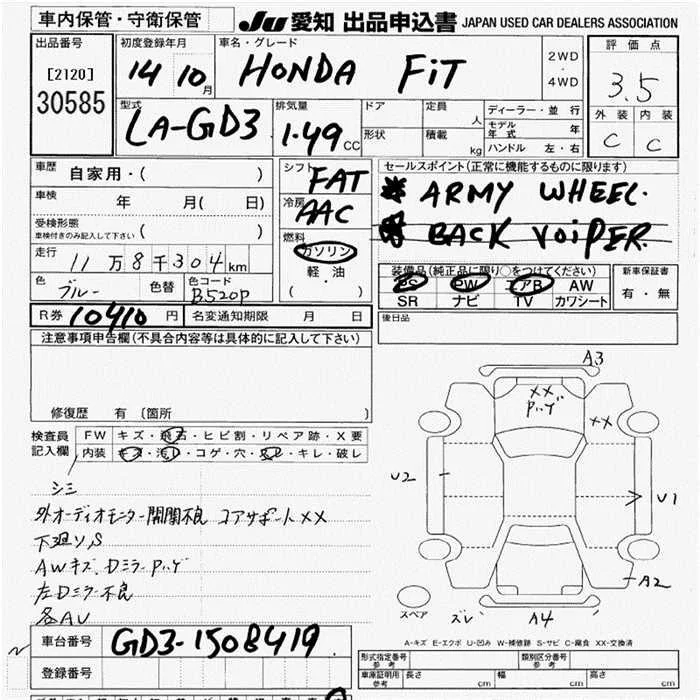 車内保管・守衛保管
JU 愛知 出品申込書 JAPAN USED CAR DEALERS ASSOCIATION
出品番号
[2120]
30585
初度登録年月
14 10月
車名・グレード
HONDA FiT
2WD
・
4WD
評価点
3.5
外装 内装
C C
型式
LA-GD3
排気量
1.49 CC
ドア
形状
定員 人
積載 kg
ディーラー・並行
モデル年式 年
ハンドル 左・右
車歴
自家用・( )
車検 年 月( 日)
受検形態
車検付きのみ記入して下さい ( )
走行 11万8千304km
色 ブルー 色替 色コード B520P
シフト FAT
冷房 AAC
燃料
ガソリン
軽・油
( ・ )
セールスポイント(正常に機能するものに限ります)
ARMY WHEEL.
BACK VOiPER.
装備品(純正品に限り○をつけてください)
PS PW エアB AW
SR ナビ TV カワシート
新車保証書
有・無
R券 10410 円 名変通知期限 月 日
後日品
注意事項申告欄(不具合内容等は具体的に記入して下さい)
修復歴 有〔箇所 〕
検査員
記入欄
FW キズ・飛石・ヒビ割・リペア跡・X要
内装 キズ・汚レ・コゲ・穴・スレ・キレ・破レ
シミ
外オーディオモニター開閉不良 コアサポートXX
下廻りS
AWキズ、Dミラーハゲ
左Dミラー不良
各AU
A3
XX
ハゲ
XX
U2
U1
A2
スペア
ズレ
A4
A-キズ E-エクボ U-凹み W-補修跡 S-サビ C-腐食 XX-交換済
車台番号 GD3-1508419
登録番号
型式指定番号 参考
類別区分番号 参考
車庫証明用 参考 長さ cm 幅 cm 高さ cm